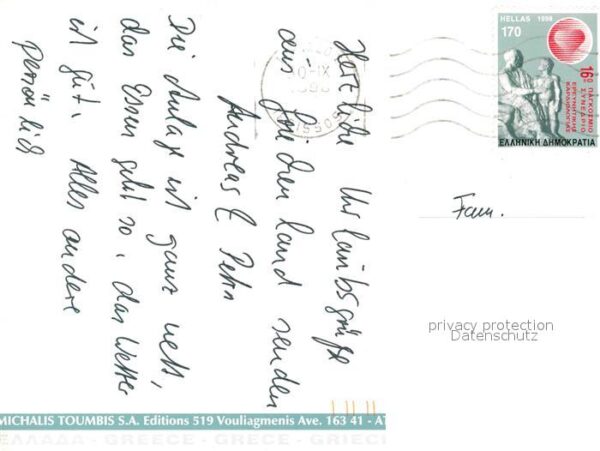 Herzliche Urlaubsgrüße
aus Griechenland senden
Andreas & Petra
Die Anlage ist ganz nett,
das Essen geht so, das Wetter
ist gut. Alles andere
persönlich
HELLAS 1998
170
16ο ΠΑΓΚΟΣΜΙΟ
ΣΥΝΕΔΡΙΟ
ΕΡΕΥΝΗΤΙΚΗΣ
ΚΑΡΔΙΟΛΟΓΙΑΣ
ΕΛΛΗΝΙΚΗ ΔΗΜΟΚΡΑΤΙΑ
Fam.
privacy protection
Datenschutz
MICHALIS TOUMBIS S.A. Editions 519 Vouliagmenis Ave. 163 41 - A
ΕΛΛΑΔΑ - GREECE - GRECE - GRIEC